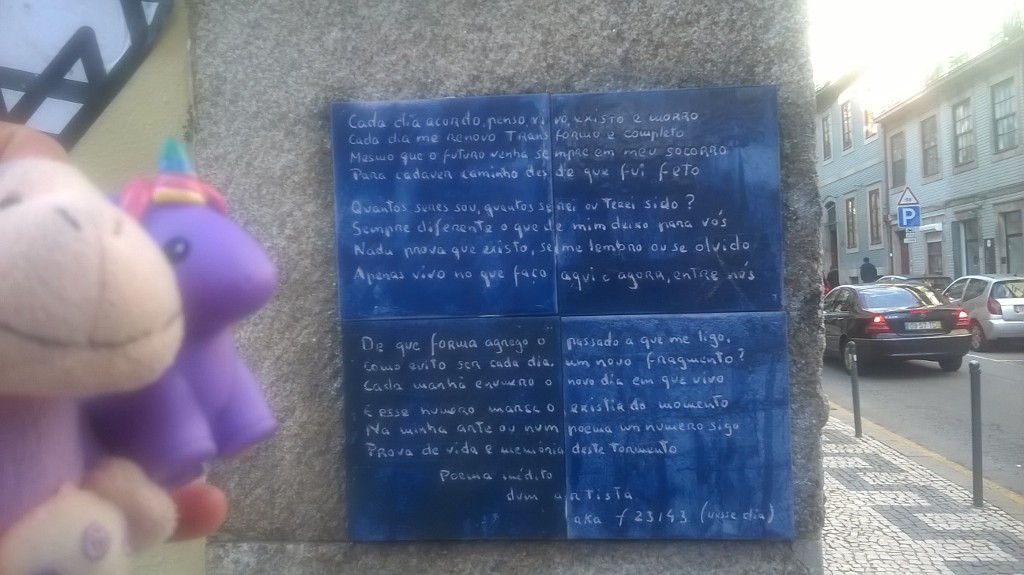 Cada dia acordo, penso, vivo, existo e morro
Cada dia me renovo Transformo e completo
Mesmo que o futuro venha sempre em meu socorro
Para cadaver caminho desde que fui feto
Quantos seres sou, quantos serei ou terei sido?
Sempre diferente o que de mim deixo para vós
Nada prova que existo, se me lembro ou se olvido
Apenas vivo no que faço aqui e agora, entre nós
De que forma agrego o passado a que me ligo,
como evito ser cada dia um novo fragmento?
Cada manhã enumero o novo dia em que vivo
E esse numero marca o existir do momento
Na minha arte ou num poema um numero sigo
Prova de vida e memória deste tormento
Poema inédito
dum artista
aka f 23143 (nesse dia)
P